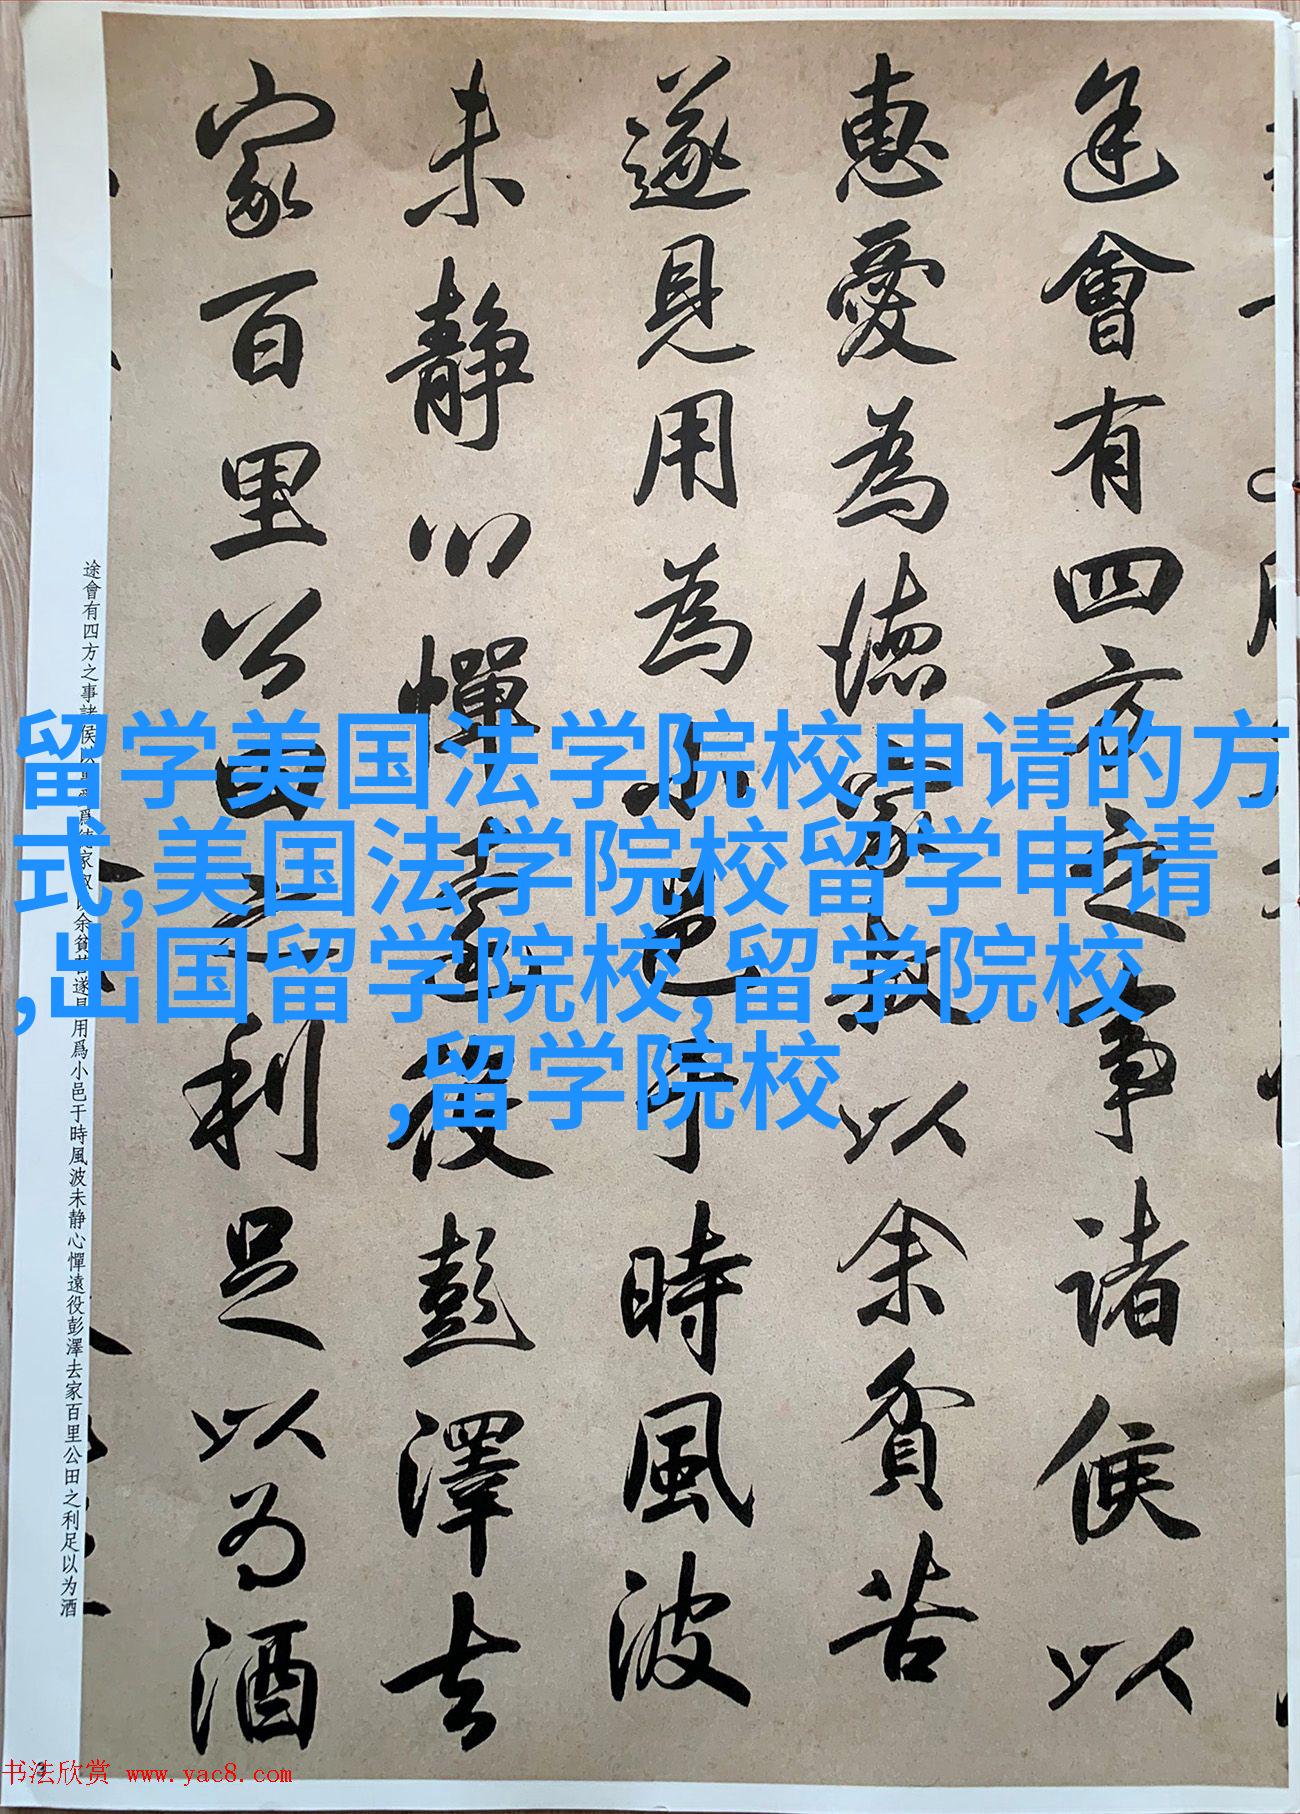 途會有四方之事諸侯以
惠愛為德家叔以余貧苦
遂見用為小邑于時風波
未靜心憚遠役彭澤去
家百里公田之利足以为酒
途會有四方之事諸侯以惠愛爲德家叔以余貧苦遂見用爲小邑于時風波未静心憚遠役彭澤去家百里公田之利足以为酒
留学美国法学院校申请的方
式,美国法学院校留学申请
,出国留学院校,留学院校
,留学院校
书法欣赏 www.yac8.com
3